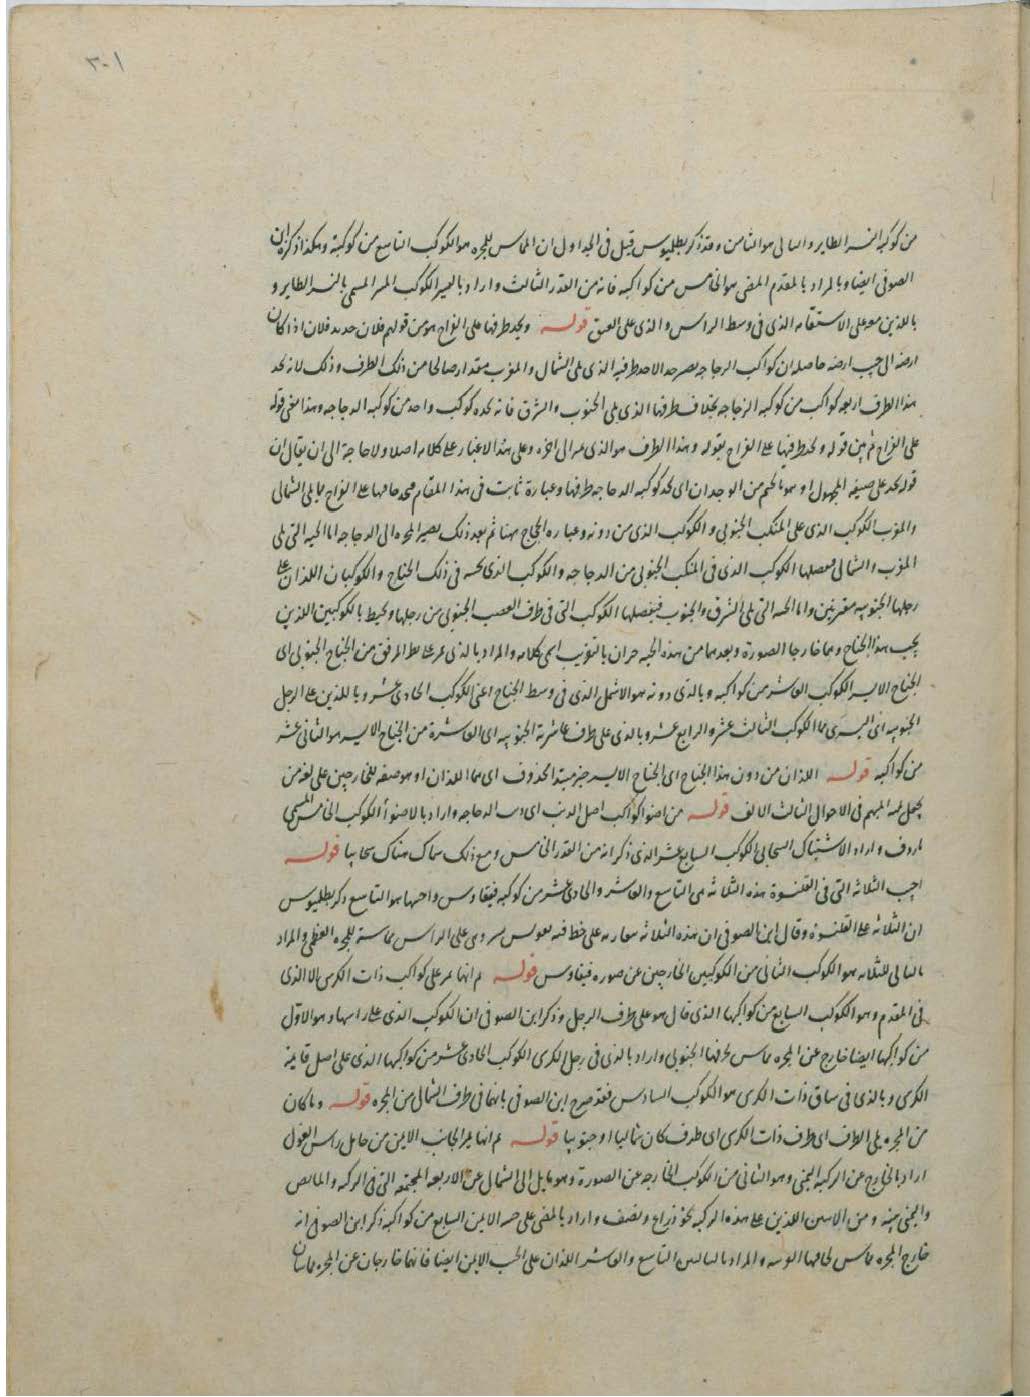 ٣٠١
من كوكبه النسر الطاير والتالى هو الثامن وقد ذكر بطليوس قبل فى الجداول ان المماس للمجره هو الكوكب التاسع من كوكبته وهكذا ذكره ابن
الصوفى ايضا وبالمراد بالمقدم المضى هو الخامس من كواكبه فانه من القدر الثالث واراد بالنير الكوكب النير المسمى بالنسر الطاير و
باللذين معه على الاستقامه الذى فى وسط الراس والذى على العنق قوله ويحد طرفها على الزاج هو من قولهم فلان حديد فلان اذا كان
ارضه الى جنب ارضه حاصله ان كواكب الدجاجه يصير حد الاحد طرفيه الذى يلى الشمال والمغرب مقدارا صالحا من ذلك الطرف وذلك لانه يحد
هذا الطرف اربعه كواكب من كوكبه الدجاجه بخلاف طرفها الذى يلى الجنوب والشرق فانه يحده كوكب واحد من كوكبه الدجاجه وهذا معنى قوله
على الزاج ثم بين قوله ويحد طرفيها على الزاج بقوله وهذا الطرف هو الذى الى اخره وعلى هذا لا غبار على كلامه اصلا ولا حاجة الى ان يقال ان
قوله يحد على صيغه المجهول او هو من الوجدان اى يحد كوكبه الدجاجه طرفها وعبارة ثابت فى هذا المقام فيحد حافها على الزاج مما يلى الشمال
والمغرب الكوكب الذى على المنكب الجنوبى والكوكب الذى من دونه وعباره الحجاج ههنا ثم بعد ذلك يصير المجره الى الدجاجه اما الحيه التى تلى
المغرب والشمال فيفصلها الكوكب الذى فى المنكب الجنوبى من الدجاجه والكوكب الذى تحته فى ذلك الجناح والكوكبان اللذان على
رجلها الجنوبيه مقترنين واما الجهه التى تلى الشرق والجنوب فيفصلها الكوكب التى فى طرف العصب الجنوبى من رجلها ويحيط بالكوكبين اللذين
بجنب هذا الجناح وهما خارجا الصورة وبعدهما من هذه الجهه جزآن بالتقريب انتهى كلامه والمراد بالذى على المرفق من الجناح الجنوبى اى
الجناح الايسر الكوكب العاشر من كواكبه وبالذى دونه هو الاشمل الذى فى وسط الجناح اعنى الكوكب الحادى عشر وباللذين على الرجل
الجنوبيه اى اليسرى هما الكوكب الثالث عشر والرابع عشر وبالذى على طرف الجنوبيه اى العاشرة من الجناح الايسر هو الثانى عشر
من كواكبه قوله اللذان من دون هذا الجناح اى الجناح الايسر خبر مبتدا محذوف اى هما اللذان او هو صفه للخارجين على لغه من
يجعل المبهم فى الاحوال الثالث الالف قوله من اضوا كواكب اصل الذنب اى ذنب الدجاجه واراد بالاضوأ الكوكب الخامس المسمى
بالردف واراد الاشتباك السحابى الكوكب السابع عشر الذى ذكر انه من القدر الخامس ومع ذلك سماك هناك سحابيا قوله
اجنب الثلاثه التى فى القلنسوة هذه الثلاثه هى التاسع والعاشر والحادى عشر من كوكبه فيقاوس واجنبها هو التاسع ذكر بطليوس
ان الثلاثه على القلنسوة وقال ابن الصوفى ان هذه الثلاثه متقاربه على خط فيه تقويس على الراس مماسة للمجره العظمى والمراد
بالتالى للثلاثه هو الكوكب الثانى من الكوكبين الخارجين عن صوره فيقاوس قوله ثم انها تمر على كواكب ذات الكرسى الا الذى
فى المقدم وهو الكوكب السابع من كواكبها الذى قال هو على طرف الرجل وذكر ابن الصوفى ان الكوكب الذى على راسها وهو الاول
من كواكبها ايضا خارج عن المجره مماس لحرفها الجنوبى واراد بالذى فى رجل الكرسى الكوكب الحادى عشر من كواكبها الذى على اصل قايمة
الكرسى وبالذى فى ساق ذات الكرسى هو الكوكب السادس فقد صرح ابن الصوفى بانهما فى طرف الشمالى من المجره قوله وما كان
من المجره يلى الطرف اى طرف ذات الكرسى اى طرف كان شماليا او جنوبيا قوله ثم انها تمر الجانب الايمن من حامل راس الغول
اراد بالخارج عن الركبه اليمنى وهو الثانى من الكوكب الخارجه عن الصورة وهو مايل الى الشمال عن الاربعه المجتمعه التى فى الركبه والمابض
واليمنى منه ومن الاثنين اللذين على هذه الركبه نحو ذراع ونصف واراد بالمضى على جنبه الايمن السابع من كواكبه ذكر ابن الصوفى انه
خارج المجره مماس لحافها والمراد بالتاليين التاسع والعاشر اللذان على الجنب الايمن ايضا فانهما خارجان عن المجره مماسان